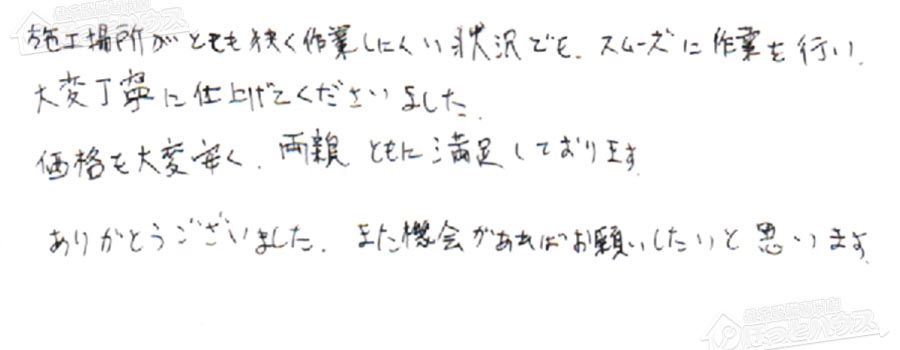 施工場所がとても狭く作業しにくい状況でも、スムーズに作業を行い、
大変丁寧に仕上げてくださいました。
価格も大変安く、両親ともに満足しております。
ありがとうございました。また機会があればお願いしたいと思います。
ほっとハウス